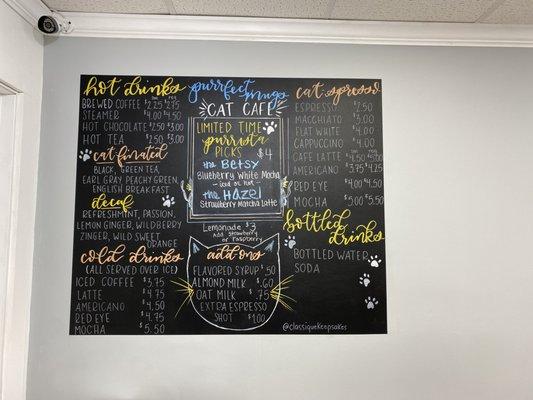 hot drinks
SM REG
BREWED COFFEE $2.25 $2.75
STEAMER $4.00 $4.50
HOT CHOCOLATE $2.50 $3.00
HOT TEA $2.50 $3.00
catfinated
BLACK, GREEN TEA,
EARL GRAY, PEACHY GREEN,
ENGLISH BREAKFAST
decaf
REFRESHMINT, PASSION,
LEMON GINGER, WILDBERRY
ZINGER, WILD SWEET
ORANGE
cold drinks
(ALL SERVED OVER ICE)
ICED COFFEE $3.75
LATTE $4.75
AMERICANO $4.50
RED EYE $4.75
MOCHA $5.50
purrfect
mugs
CAT CAFE
LIMITED TIME
purrista
PICKS $4
the BETSY
Blueberry White Mocha
iced or hot
the HAZEL
Strawberry Matcha Latte
Lemonade $3
Add Strawberry
or Raspberry
add-ons
FLAVORED SYRUP $.50
ALMOND MILK $.60
OAT MILK $.75
EXTRA ESPRESSO
SHOT $1.00
cat espresso
ESPRESSO $2.50
MACCHIATO $3.00
FLAT WHITE $4.00
CAPPUCCINO $4.00
CAFE LATTE $4.50 $5.00
AMERICANO $3.75 $4.25
RED EYE $4.00 $4.50
MOCHA $5.00 $5.50
Bottled
drinks
BOTTLED WATER
SODA
@classiquekeepsakes